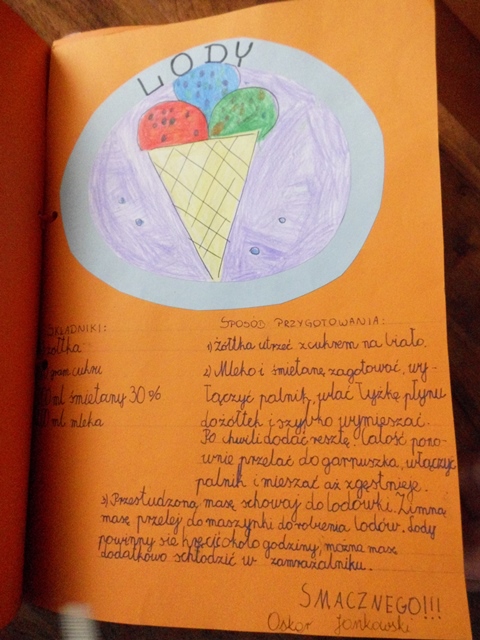 LODY
SKŁADNIKI:
żółtka
gram cukru
ml śmietany 30%
ml mleka
SPOSÓD PRZYGOTOWANIA:
1) żółtka utrzeć z cukrem na biało.
2) Mleko i śmietanę zagotować, wy-
łączyć palnik, wlać łyżkę płynu
do żółtek i szybko wymieszać.
Po chwili dodać resztę. Całość pono-
wnie przelać do garnuszka, włączyć
palnik i mieszać aż zgęstnieje.
3) Przestudzoną masę schowaj do lodówki. Zimną
masę przelej do maszynki do robienia lodów. Lody
powinny się kręcić około godziny, można masę
dodatkowo schłodzić w zamrażalniku.
SMACZNEGO!!!
Oskar Jankowski